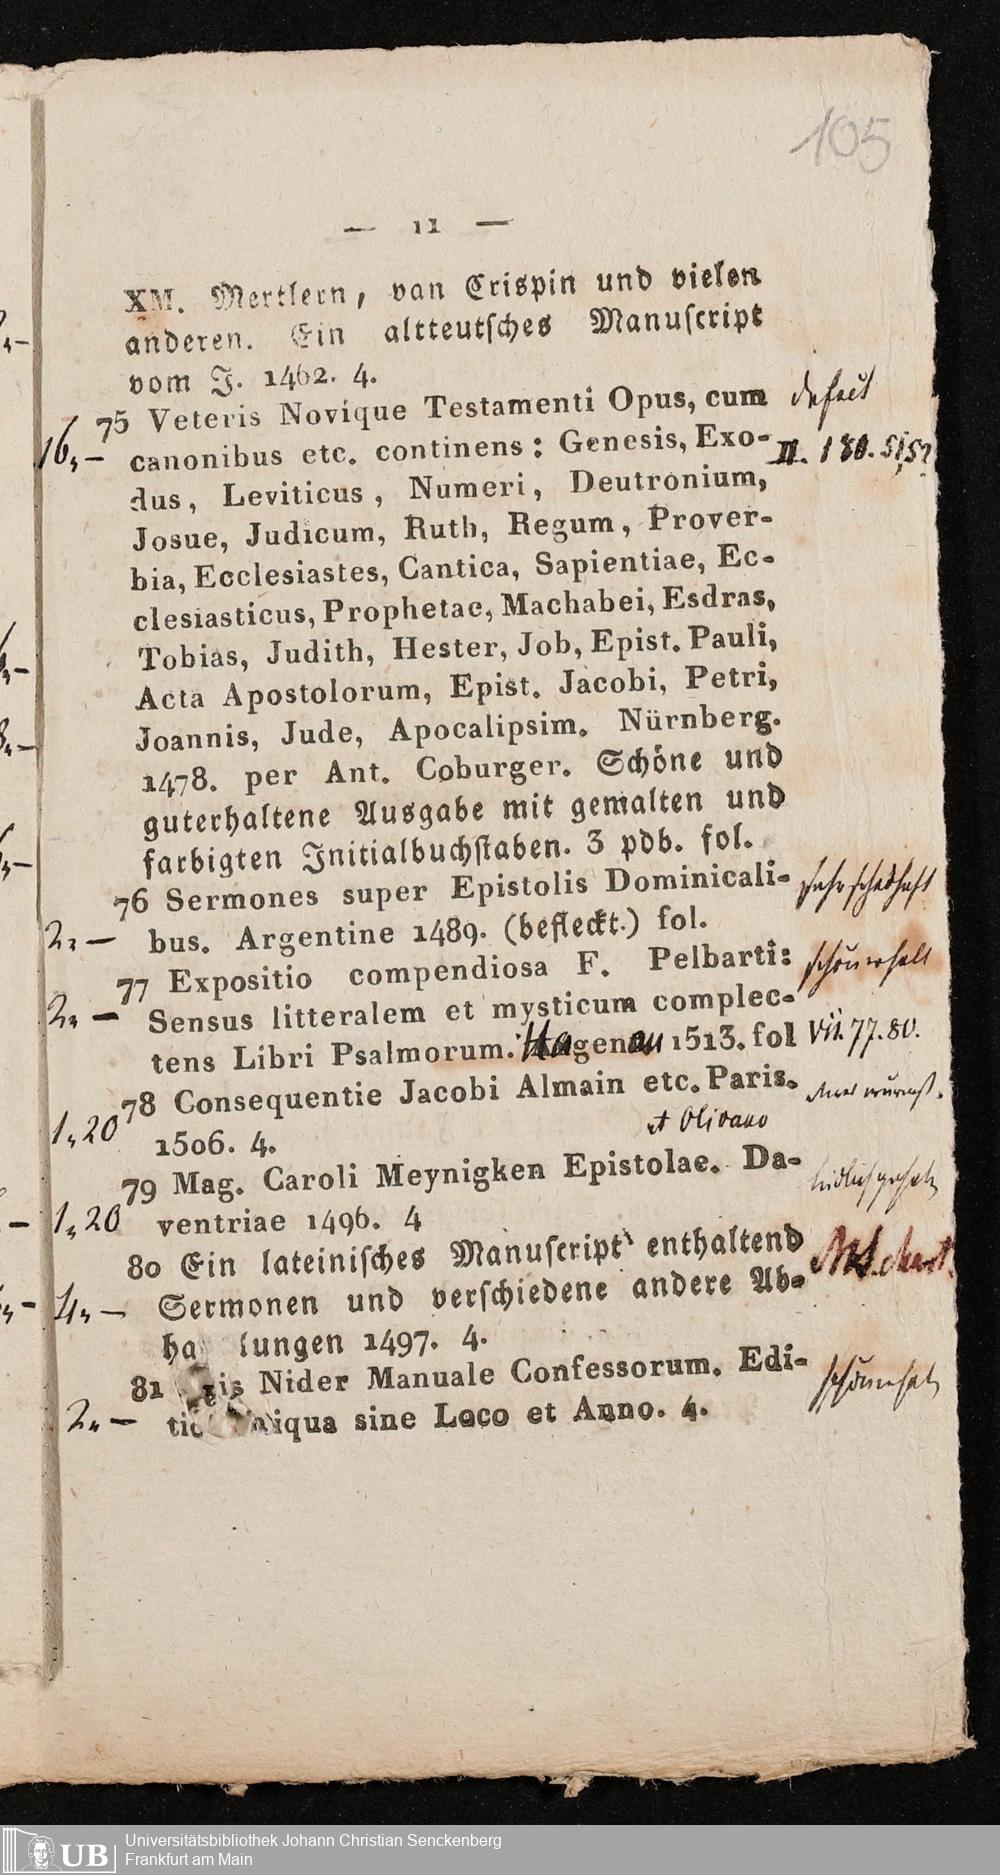 105
— 11 —
XM. Mertlern, van Crispin und vielen
anderen. Ein altteutsches Manuscript
vom J. 1462. 4.
75 Veteris Novique Testamenti Opus, cum defect
16,,— canonibus etc. continens: Genesis, Exo- II. 180.
dus, Leviticus, Numeri, Deutronium,
Josue, Judicum, Ruth, Regum, Prover-
bia, Ecclesiastes, Cantica, Sapientiae, Ec-
clesiasticus, Prophetae, Machabei, Esdras,
Tobias, Judith, Hester, Job, Epist. Pauli,
Acta Apostolorum, Epist. Jacobi, Petri,
Joannis, Jude, Apocalipsim. Nürnberg.
1478. per Ant. Coburger. Schöne und
guterhaltene Ausgabe mit gemalten und
farbigten Initialbuchstaben. 3 pdb. fol.
76 Sermones super Epistolis Dominicali- sehr schadhaft
2,,— bus. Argentine 1489. (befleckt.) fol.
77 Expositio compendiosa F. Pelbarti: schön erhalt
2,,— Sensus litteralem et mysticum complec-
tens Libri Psalmorum. Hagenau 1513. fol VII. 77.80.
78 Consequentie Jacobi Almain etc. Paris.
1,,20 1506. 4. et Olivano
79 Mag. Caroli Meynigken Epistolae. Da-
1,,20 ventriae 1496. 4
80 Ein lateinisches Manuscript enthaltend
4,,— Sermonen und verschiedene andere Ab-
ha lungen 1497. 4.
81 is Nider Manuale Confessorum. Edi-
2,,— tio iqua sine Loco et Anno. 4.
UB
Universitätsbibliothek Johann Christian Senckenberg
Frankfurt am Main